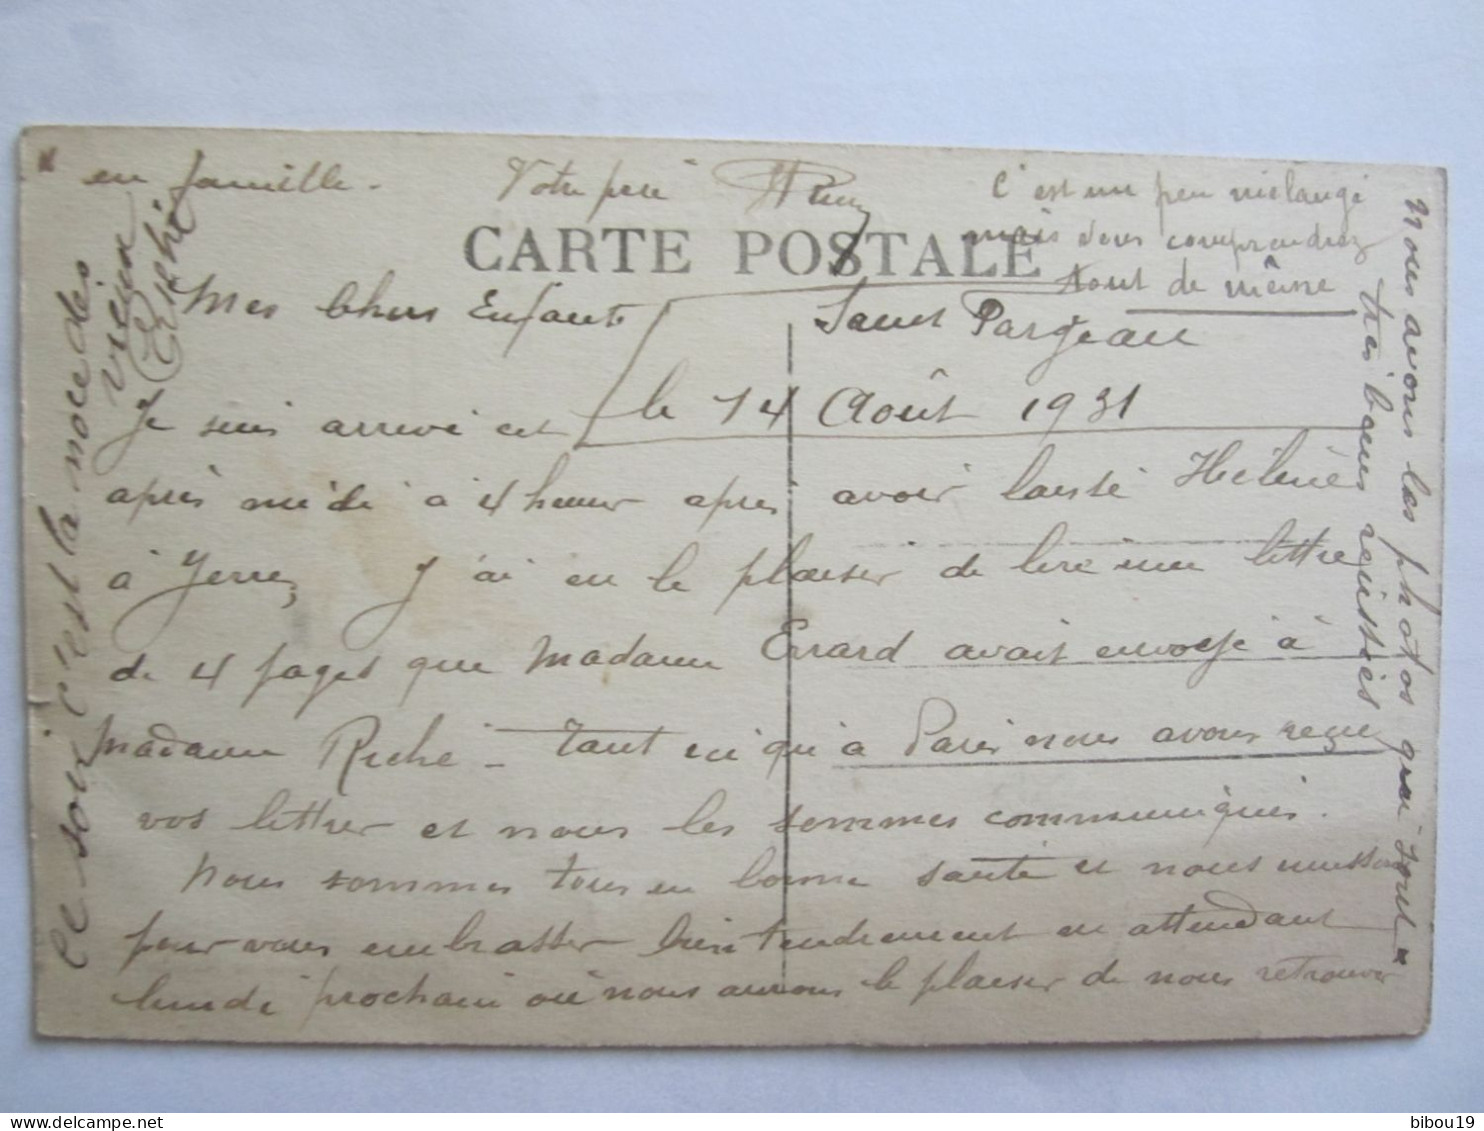 CARTE POSTALE
Saint Fargeau
le 14 Août 1931
Mes Chers Enfants
Je suis arrivé cet
après midi à 4 heures après avoir laissé Hélène
à Yerres, J'ai eu le plaisir de lire une lettre
de 4 pages que Madame Evrard avait envoyé à
Madame Riché - Tant ici qu'à Paris nous avons reçu
vos lettres et nous les sommes communiqués.
Nous sommes tous en bonne santé et nous
pour vous embrasser bien tendrement en attendant
lundi prochain où nous aurons le plaisir de nous retrouver
* en famille. Votre père
C'est un peu mélangé
mais vous comprendrez
tout de même
Nous avons les photos qui sont *
très biens réussies
Ce soir c'est la noce des
vieux
Riché
bibou19